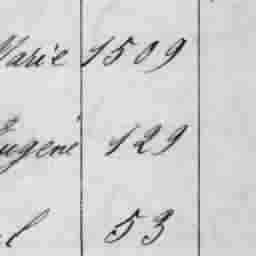 Marie 1509
Eugene 129
l 53